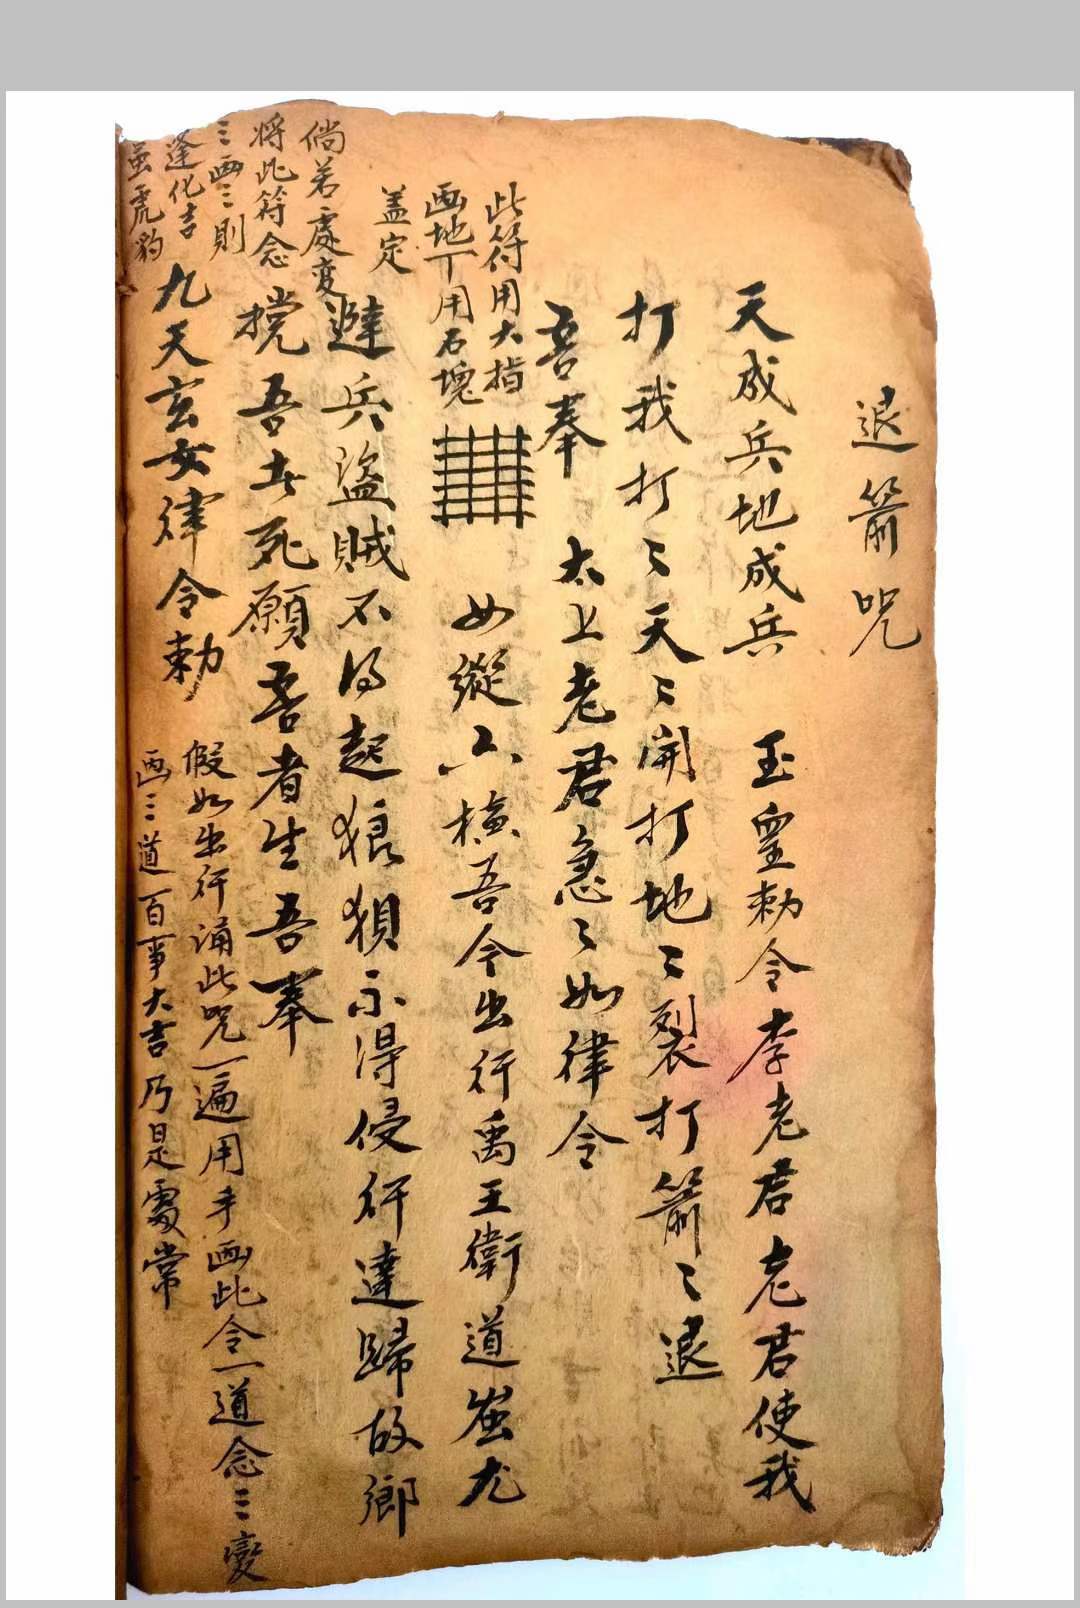 退箭咒
天成兵地成兵 玉皇勅令李老君老君使我
打我打〻天〻開打地〻裂打箭〻退
吾奉 太上老君急〻如律令
此符用大指
画地下用石塊
盖定
縱六橫吾今出行禹王衛道蚩尤
避兵盜賊不得起狼狽不得侵行達歸故鄉
倘若處变
將此符念
三画三則
逢化吉
虎豹
攩吾者死願吾者生吾奉
九天玄女律令勅
假如出行誦此咒一遍用手画此令一道念三變
画三道百事大吉乃是處常